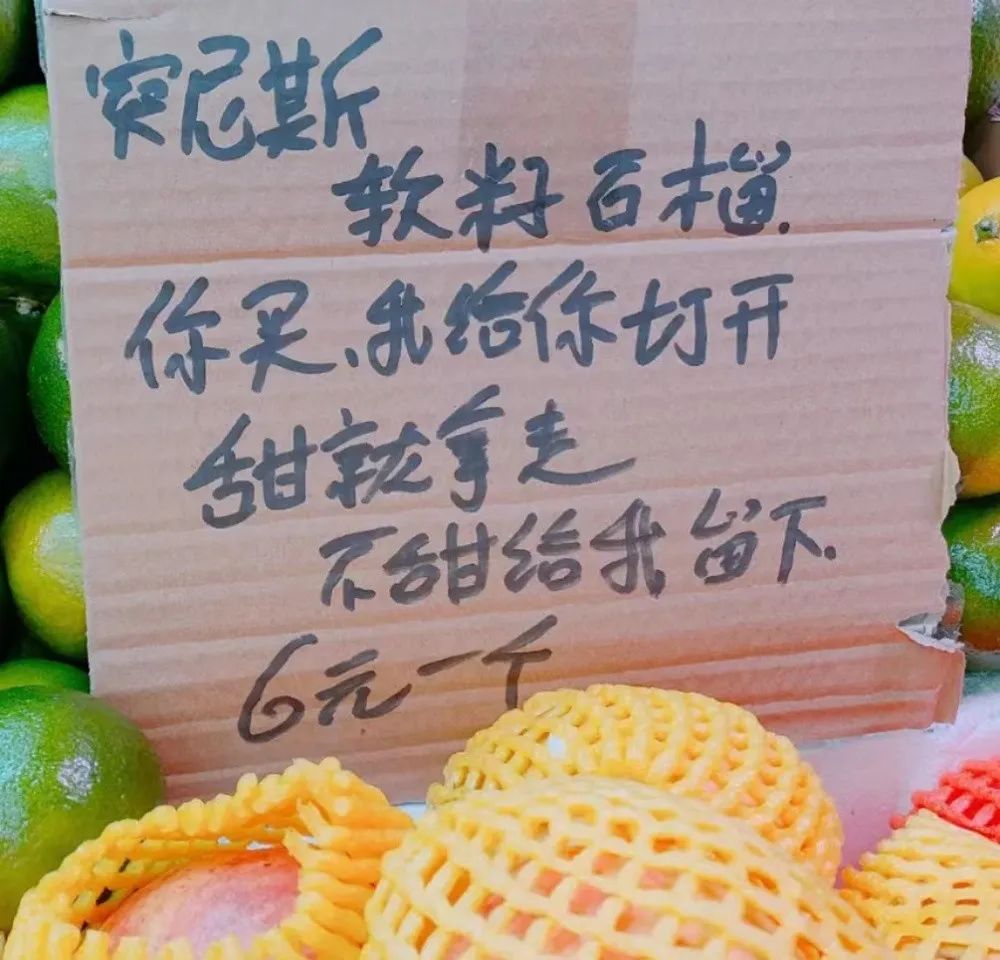 突尼斯
软籽石榴.
你买、我给你打开
甜就拿走
不甜给我留下.
6元一个